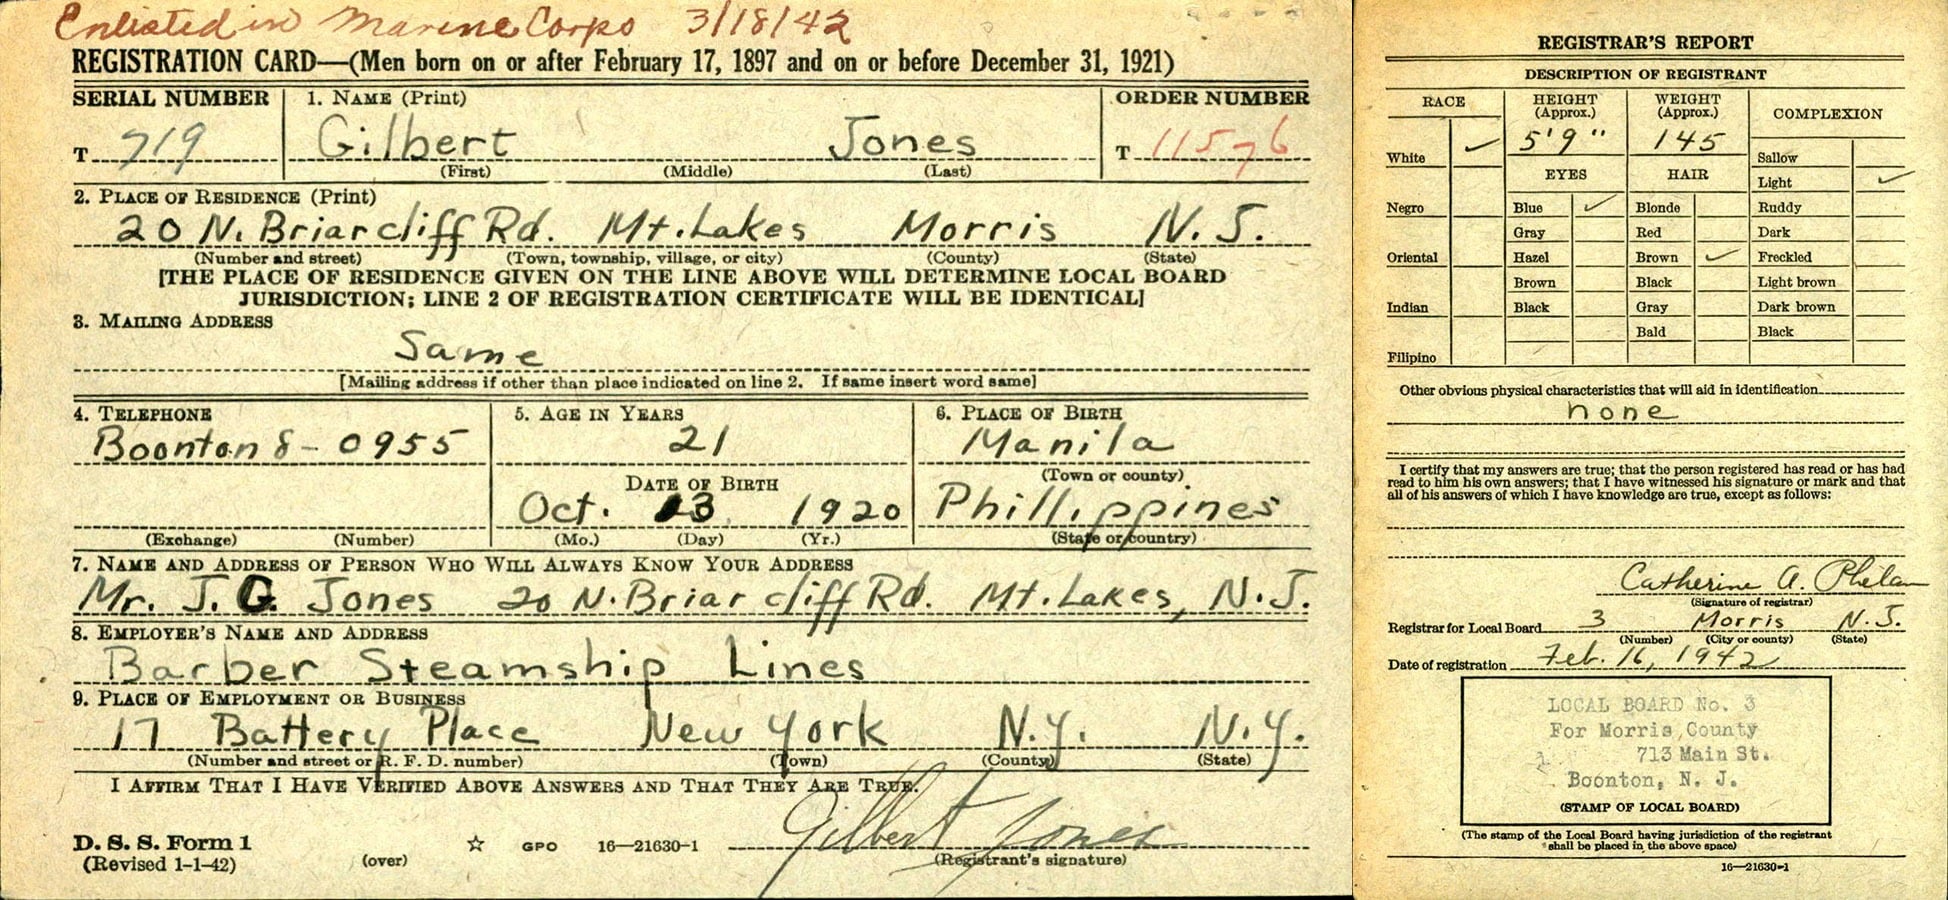 Enlisted in Marine Corps 3/18/42
REGISTRATION CARD—(Men born on or after February 17, 1897 and on or before December 31, 1921)
SERIAL NUMBER 1. NAME (Print) ORDER NUMBER
T 719 Gilbert Jones T 11576
(First) (Middle) (Last)
2. PLACE OF RESIDENCE (Print)
20 N. Briarcliff Rd. Mt. Lakes Morris N. J.
(Number and street) (Town, township, village, or city) (County) (State)
[THE PLACE OF RESIDENCE GIVEN ON THE LINE ABOVE WILL DETERMINE LOCAL BOARD
JURISDICTION; LINE 2 OF REGISTRATION CERTIFICATE WILL BE IDENTICAL]
3. MAILING ADDRESS
Same
[Mailing address if other than place indicated on line 2. If same insert word same]
4. TELEPHONE 5. AGE IN YEARS 6. PLACE OF BIRTH
Boonton 8-0955 21 Manila
(Town or county)
DATE OF BIRTH
Oct. 13 1920 Phillippines
(Exchange) (Number) (Mo.) (Day) (Yr.) (State or country)
7. NAME AND ADDRESS OF PERSON WHO WILL ALWAYS KNOW YOUR ADDRESS
Mr. J. G. Jones 20 N. Briarcliff Rd. Mt. Lakes, N. J.
8. EMPLOYER'S NAME AND ADDRESS
Barber Steamship Lines
9. PLACE OF EMPLOYMENT OR BUSINESS
17 Battery Place New York N.Y. N.Y.
(Number and street or R. F. D. number) (Town) (County) (State)
I AFFIRM THAT I HAVE VERIFIED ABOVE ANSWERS AND THAT THEY ARE TRUE.
Gilbert Jones
D. S. S. Form 1
(Revised 1-1-42) (over) GPO 16—21630-1 (Registrant's signature)
REGISTRAR'S REPORT
DESCRIPTION OF REGISTRANT
RACE HEIGHT (Approx.) WEIGHT (Approx.) COMPLEXION
White ✓ 5'9" 145 Sallow
EYES HAIR Light ✓
Negro Blue ✓ Blonde Ruddy
Gray Red Dark
Oriental Hazel Brown ✓ Freckled
Brown Black Light brown
Indian Black Gray Dark brown
Bald Black
Filipino
Other obvious physical characteristics that will aid in identification
none
I certify that my answers are true; that the person registered has read or has had
read to him his own answers; that I have witnessed his signature or mark and that
all of his answers of which I have knowledge are true, except as follows:
Catherine A. Phelan
(Signature of registrar)
Registrar for Local Board 3 Morris N. J.
(Number) (City or county) (State)
Date of registration Feb. 16, 1942
LOCAL BOARD No. 3
For Morris County
713 Main St.
Boonton, N. J.
(STAMP OF LOCAL BOARD)
(The stamp of the Local Board having jurisdiction of the registrant
shall be placed in the above space)
16—21630-1